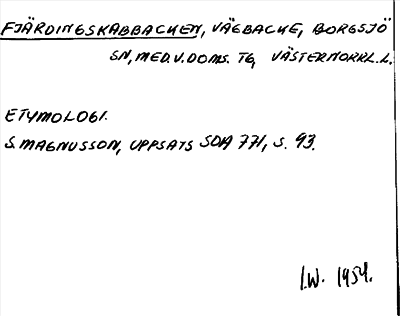 FJÄRDINGSKABBACKEN, VÄGBACKE, BORGSJÖ
SN, MED.V.DOMS. TG, VÄSTERNORRL.L.
ETYMOLOGI.
S. MAGNUSSON, UPPSATS SOA 771, S. 93.
I.W. 1954.